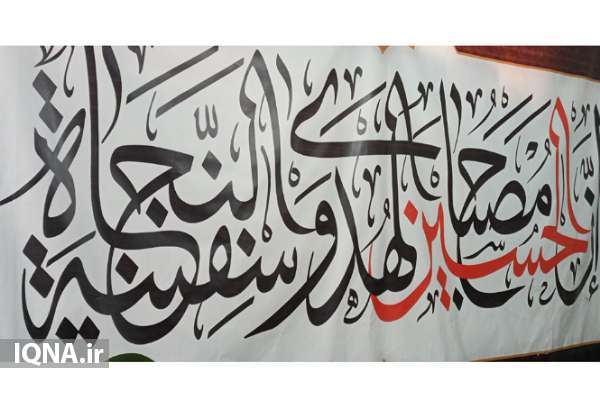 إنّ الحسين مصباح الهدی و سفینة النّجاة
IQNA.ir